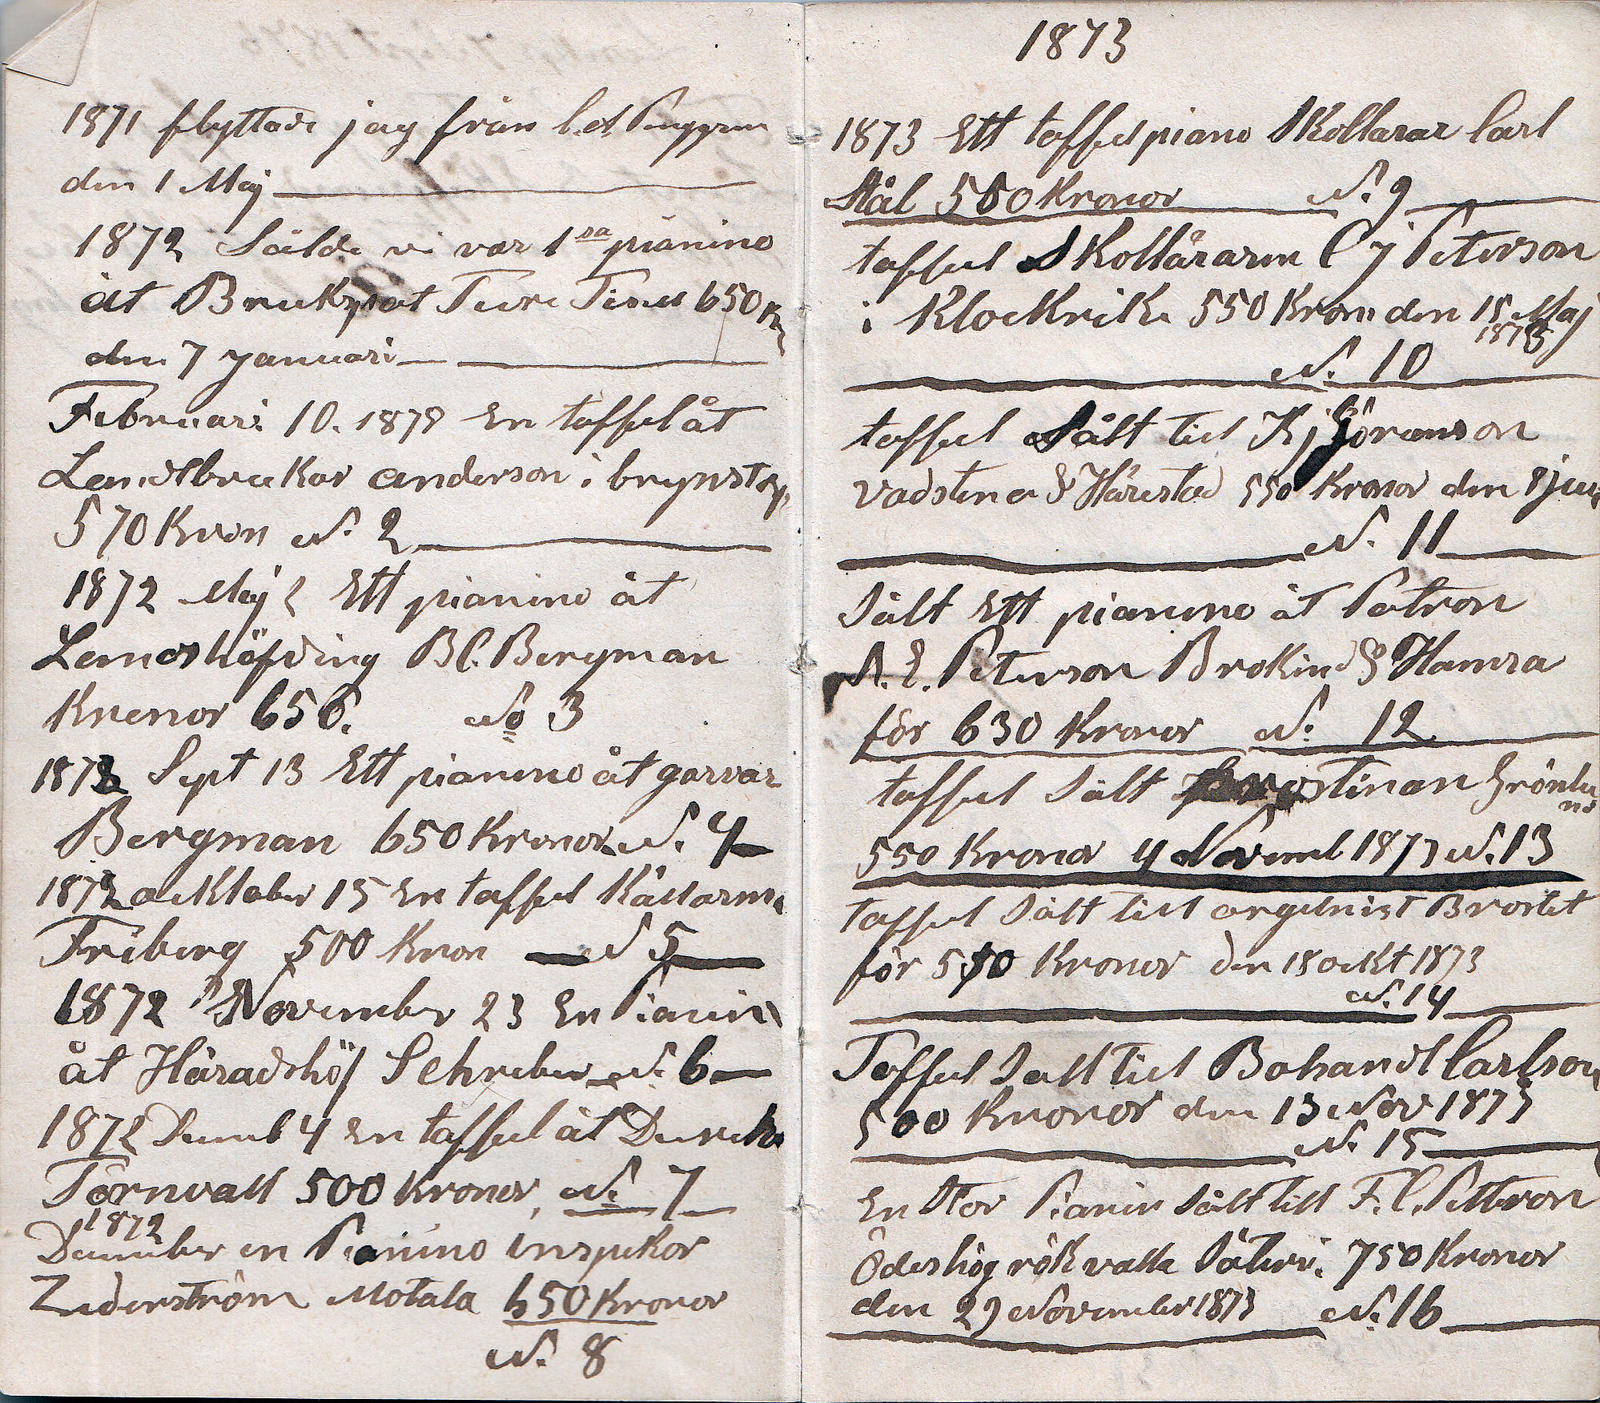 1871 flyttade jag från
den 1 Maj
1872 Sålde vi vår 1sa pianino
åt Brukspat Ture 650 Kr
den 7 januari
Februari 10. 1872 En taffel åt
Landtbrukar anderson i brynstorp
570 Kron No. 2
1872 Maj 2 Ett pianino åt
Lanoshöfding B C. Bergman
Kronor 650. No 3
1872 Sept 13 Ett pianino åt garvar
Bergman 650 Kronor No. 4
1872 ocktober 15 En taffel Kållarma
Friberg 500 Kron No 5
1872 November 23 En Pianin
åt Häradshöf Schreber No. 6
1872 Decemb 4 En taffel åt Dereckt
Törnvall 500 Kronor, No. 7
1872
December en Pianino inspektor
Zederström Motala 650 Kronor
No. 8
1873
1873 Ett taffelpiano Skollärar Carl
Stål 550 Kronor No. 9
taffel Skollärarn C j Peterson
i Klockrike 550 Kron den 15 Maj
1873
No. 10
taffel Sålt till K j Göranson
Vadstena & Hårestad 550 Kronor den 8 juni
No. 11
Sålt Ett pianino åt Patron
A. E. Peterson Brokind & Hamra
för 630 Kronor No. 12
taffel Sålt Prostinan Grönlu
nd
550 Kronor 4 Novemb 1873 No. 13
taffel Sålt till orgelnist Brostet
för 550 Kronor den 18 ockt 1873
No. 14
Taffel Sålt till Bohandl Carlson
500 Kronor den 13 Nov 1873
No. 15
En Stor Pianin Sålt till F. C. Petterson
Ödeshög rök valla Säteri. 750 Kronor
den 29 November 1873 No. 16